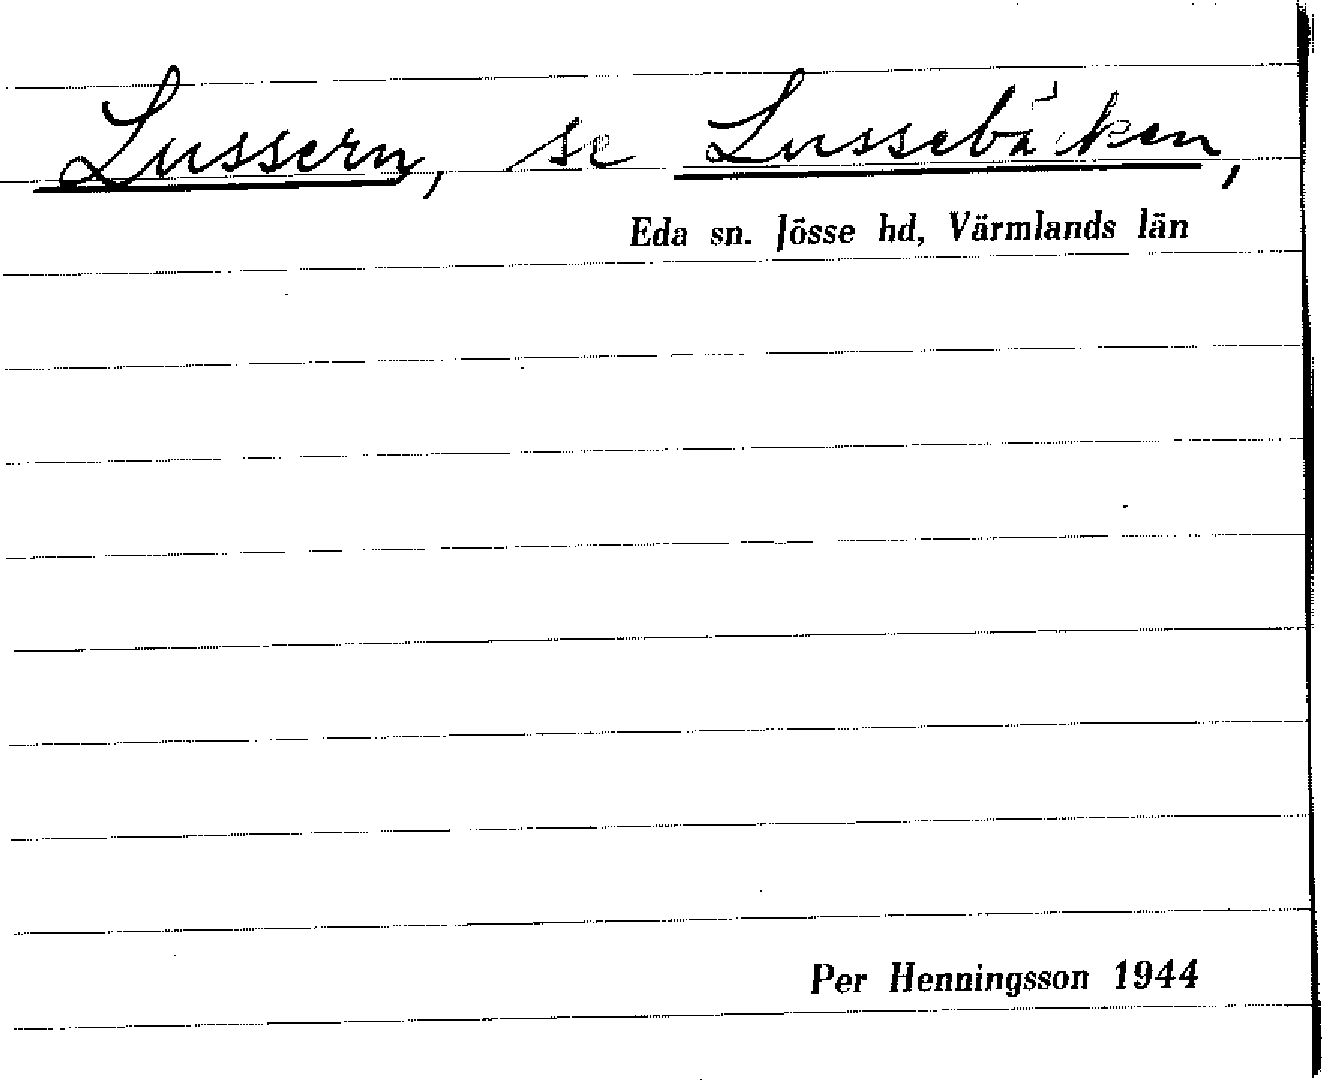 Lussern, se Lussebäcken,
Eda sn. Jösse hd, Värmlands län
Per Henningsson 1944